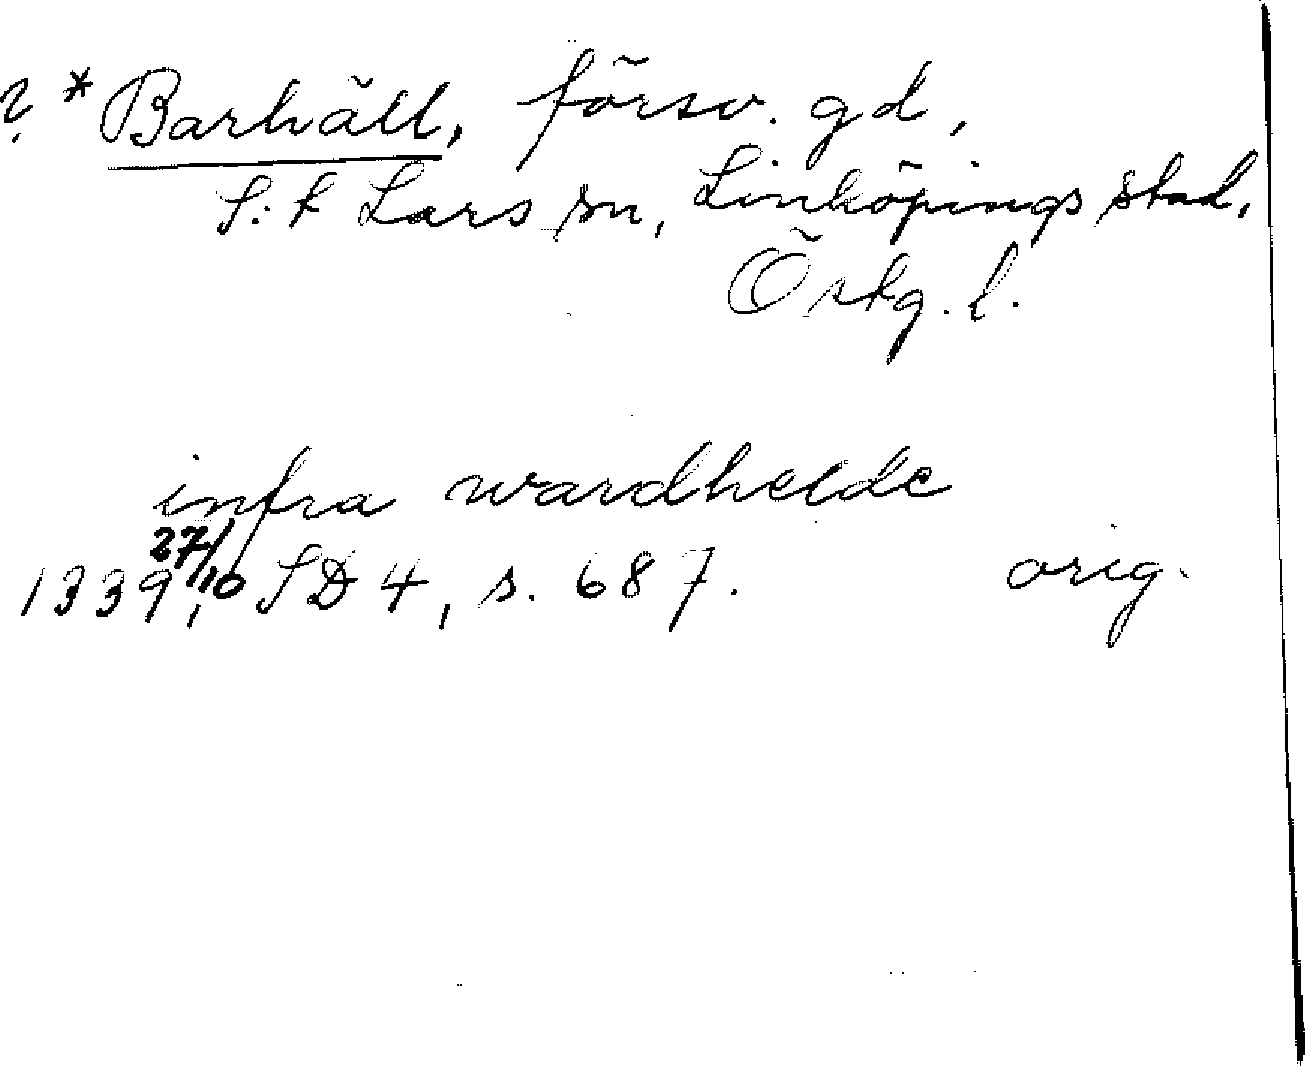 ? * Barhäll, försv. gd,
S:t Lars sn, Linköpings stad,
Östg. l.
infra wardhelde
1339 27/10, SD 4, s. 687. orig.